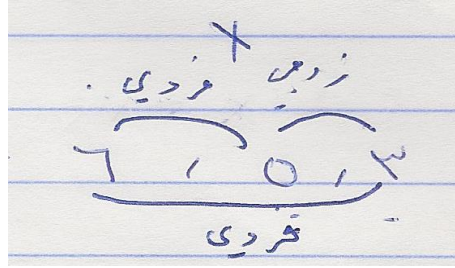 زوجي × فردي
٣ ، ٥ ، ٦
فردي